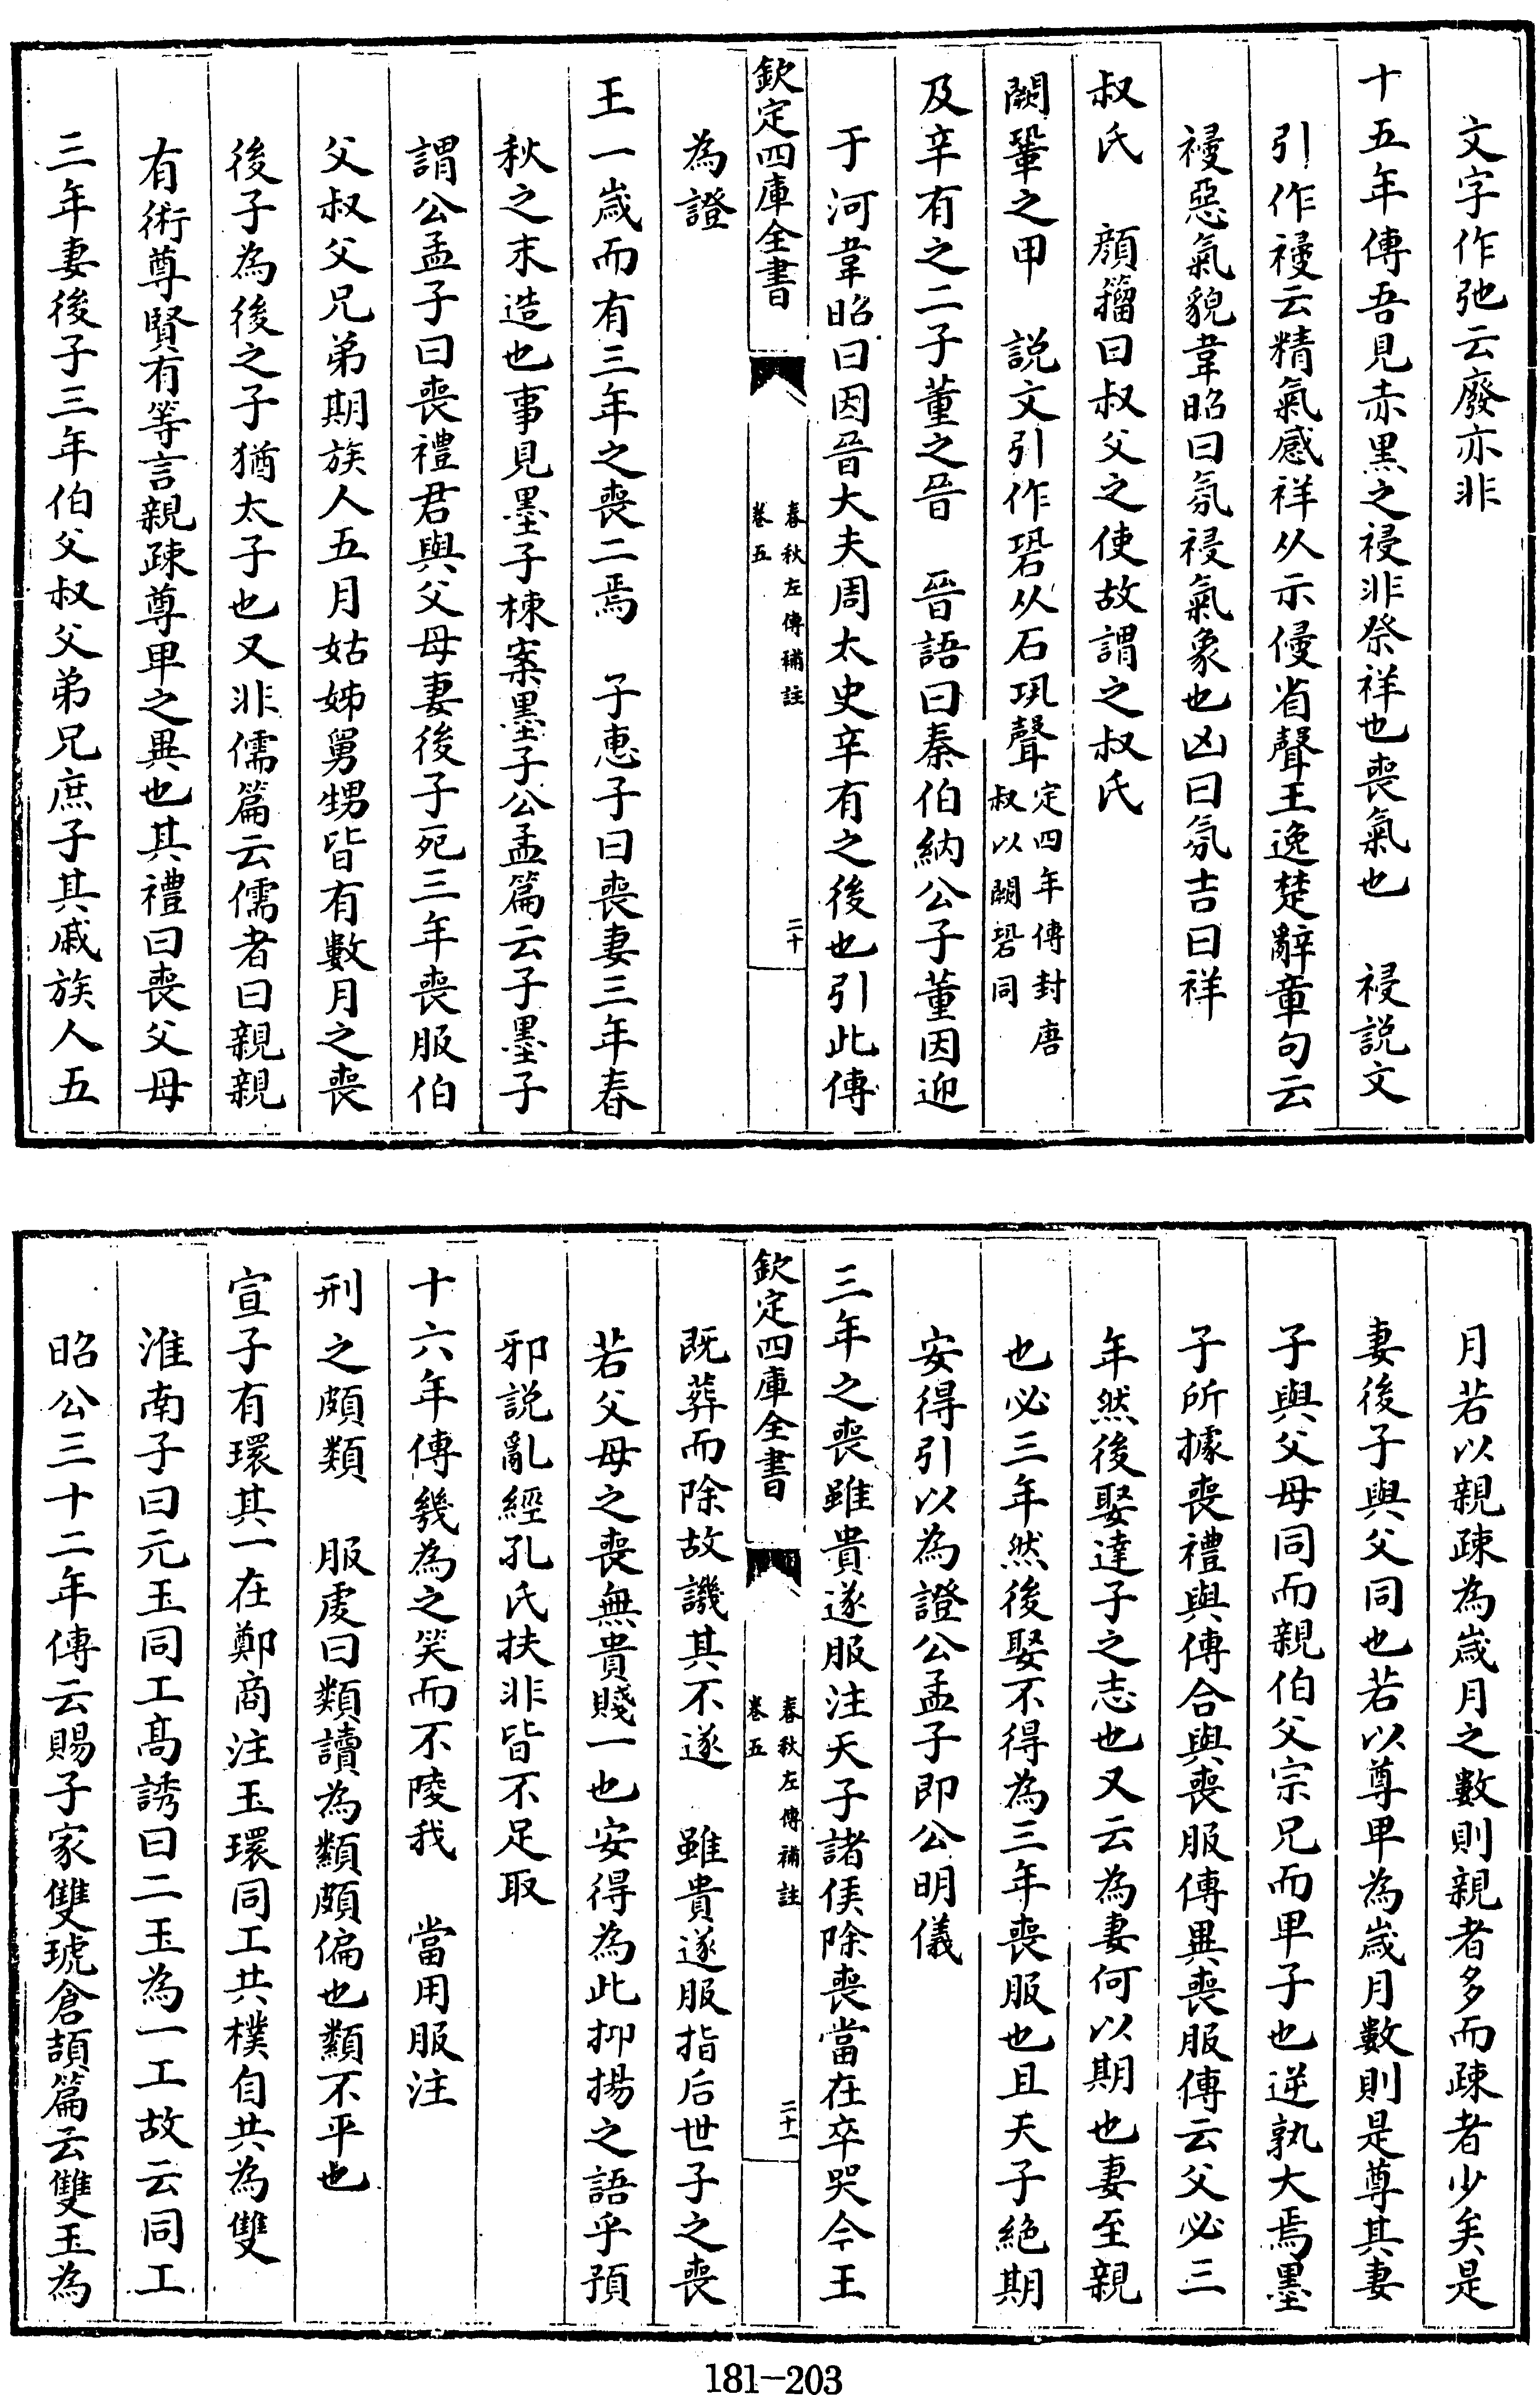 文字作弛云廢亦非
十五年傳吾見赤黑之祲非祭祥也喪氣也　祲説文
引作祲云精氣感祥从示侵省聲王逸楚辭章句云
祲惡氣貌韋昭曰氛祲氣象也凶曰氛吉曰祥
叔氏　顔籀曰叔父之使故謂之叔氏
闕鞏之甲　説文引作碧从石巩聲定四年傳封唐叔以闕碧同
及辛有之二子董之晉　晉語曰秦伯納公子董因迎
于河韋昭曰因晉大夫周太史辛有之後也引此傳
欽定四庫全書　春秋左傳補註卷五　二十
為證
王一歲而有三年之喪二焉　子惠子曰喪妻三年春
秋之末造也事見墨子棟案墨子公孟篇云子墨子
謂公孟子曰喪禮君與父母妻後子死三年喪服伯
父叔父兄弟期族人五月姑姊舅甥皆有數月之喪
後子為後之子猶太子也又非儒篇云儒者曰親親
有術尊賢有等言親疎尊卑之異也其禮曰喪父母
三年妻後子三年伯父叔父弟兄庶子其戚族人五
月若以親疎為歲月之數則親者多而疎者少矣是
妻後子與父同也若以尊卑為歲月數則是尊其妻
子與父母同而親伯父宗兄而卑子也逆孰大焉墨
子所據喪禮與傳合與喪服傳異喪服傳云父必三
年然後娶達子之志也又云為妻何以期也妻至親
也必三年然後娶不得為三年喪服也且天子絶期
安得引以為證公孟子即公明儀
三年之喪雖貴遂服注天子諸侯除喪當在卒哭今王
欽定四庫全書　春秋左傳補註卷五　二十一
既葬而除故譏其不遂　雖貴遂服指后世子之喪
若父母之喪無貴賤一也安得為此抑揚之語乎預
邪説亂經孔氏扶非皆不足取
十六年傳幾為之笑而不陵我　當用服注
刑之頗類　服虔曰類讀為纇頗偏也纇不平也
宣子有環其一在鄭商注玉環同工共樸自共為雙
淮南子曰元玉同工高誘曰二玉為一工故云同工
昭公三十二年傳云賜子家雙琥倉頡篇云雙玉為
181-203